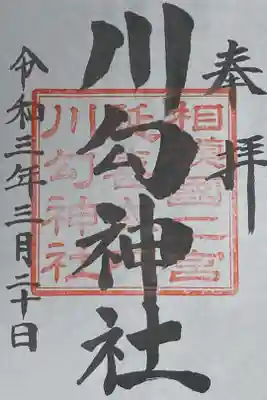 奉拝
川勾神社
相模国二宮
川勾神社
令和三年三月二十日